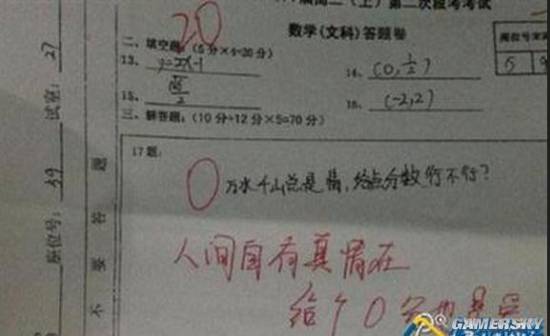 高二（上）第二次段考考试
数学(文科) 答题卷
20
二、填空题：(5分×4=20分)
13、 y=2x-1
14、 (0, 1/2)
15、
16、 (-2,2)
三、解答题：(10分+12分×5=70分)
17题：
0
万水千山总是情，给点分数行不行？
人间自有真情在
给个0分也是
试室：27
座位号：39
不要答题
GAMERSKY